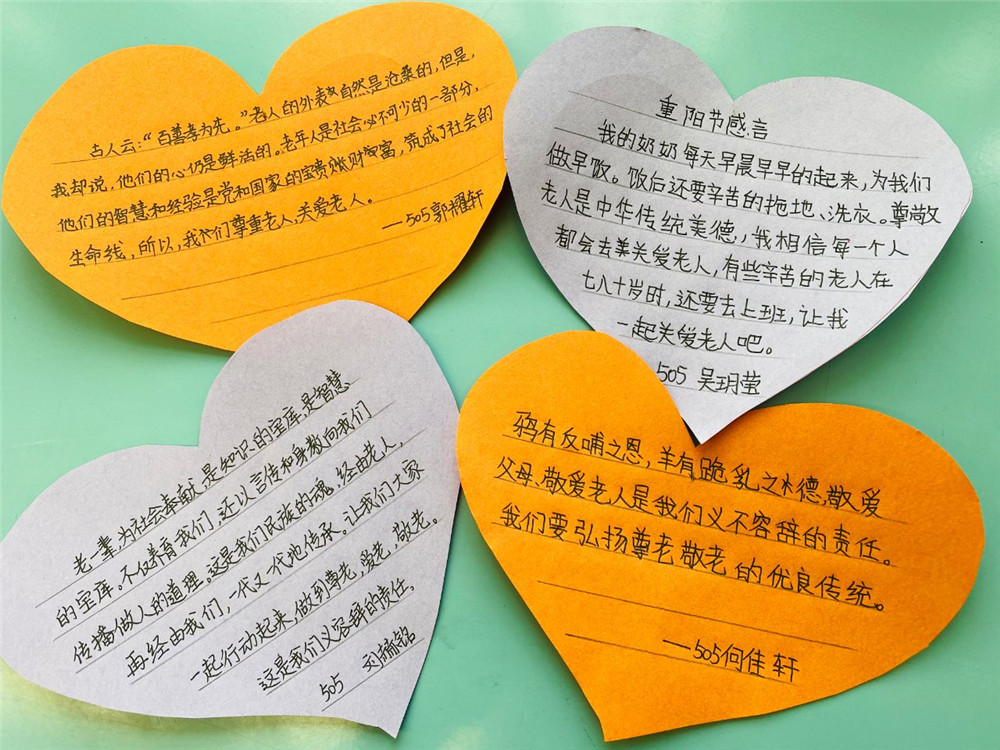 古人云:“百善孝为先。”老人的外表自然是沧桑的,但是,
我却说,他们的心仍是鲜活的。老年人是社会必不可少的一部分,
他们的智慧和经验是党和国家的宝贵财富,筑成了社会的
生命线,所以,我们尊重老人,关爱老人。
——505郭耀轩
重阳节感言
我的奶奶每天早晨早早的起来,为我们
做早饭。饭后还要辛苦的拖地、洗衣。尊敬
老人是中华传统美德,我相信每一个人
都会去关爱老人,有些辛苦的老人在
七八十岁时,还要去上班,让我
一起关爱老人吧。
505 吴玥莹
老一辈,为社会奉献,是知识的宝库,是智慧
的宝库。不仅养育我们,还以言传和身教向我们
传播做人的道理。这是我们民族的魂,经由老人,
再经由我们,一代又一代地传承。让我们大家
一起行动起来,做到尊老,爱老,敬老。
这是我们义容辞的责任。
505 刘铭
鸦有反哺之恩,羊有跪乳之德,敬爱
父母、敬爱老人是我们义不容辞的责任。
我们要弘扬尊老敬老的优良传统。
——505何佳轩